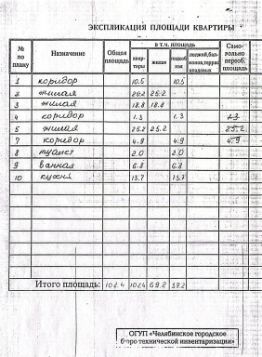 ЭКСПЛИКАЦИЯ ПЛОЩАДИ КВАРТИРЫ
№ по плану Назначение Общая площадь В Т.Ч. ПЛОЩАДЬ квартиры жилая подсобная лоджий, балконов, террас Само-вольно переоб. площадь
1 коридор 10.5 10.5
2 жилая 25.2 25.2
3 жилая 18.8 18.8
4 коридор 1.3 1.3 1.3
5 жилая 25.2 25.2 25.2
7 коридор 4.9 4.9 4.9
8 туалет 2.0 2.0
9 ванная 6.8 6.8
10 кухня 13.7 13.7
Итого площадь: 101.4 101.4 69.2 32.2
ОГУП «Челябинское городское
бюро технической инвентаризации»